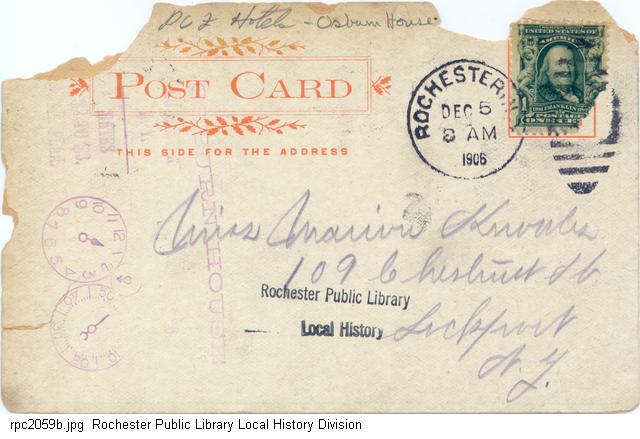 PCZ Hotels - Osburn House
UNITED STATES OF
POST CARD
THIS SIDE FOR THE ADDRESS
ROCHESTER, N.
DEC 5
8 AM
1906
FRANKLIN
POSTAGE
1
Miss Marion Knowles
109 Chestnut St
Lockport
N. Y.
Rochester Public Library
Local History
BURN HOUSE
12 1 2 3 4 5 6 7 8 9 10 11
rpc2059b.jpg Rochester Public Library Local History Division